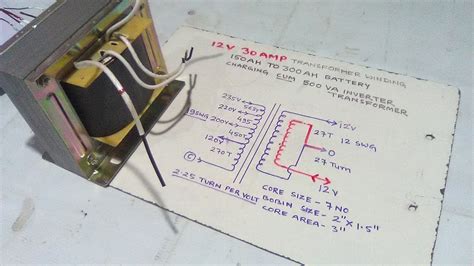 12V 30AMP TRANSFORMER WINDING
150AH TO 300AH BATTERY
CHARGING CUM 500 VA INVERTER
TRANSFORMER
235V
200V
495
19SWG
450T
120V
270T
C
12V
27T 12 SWG
0
27 Turn
12V
2.25 TURN PER VOLT
CORE SIZE - 7 NO
BOBIN SIZE - 2" X 1.5"
CORE AREA - 3"